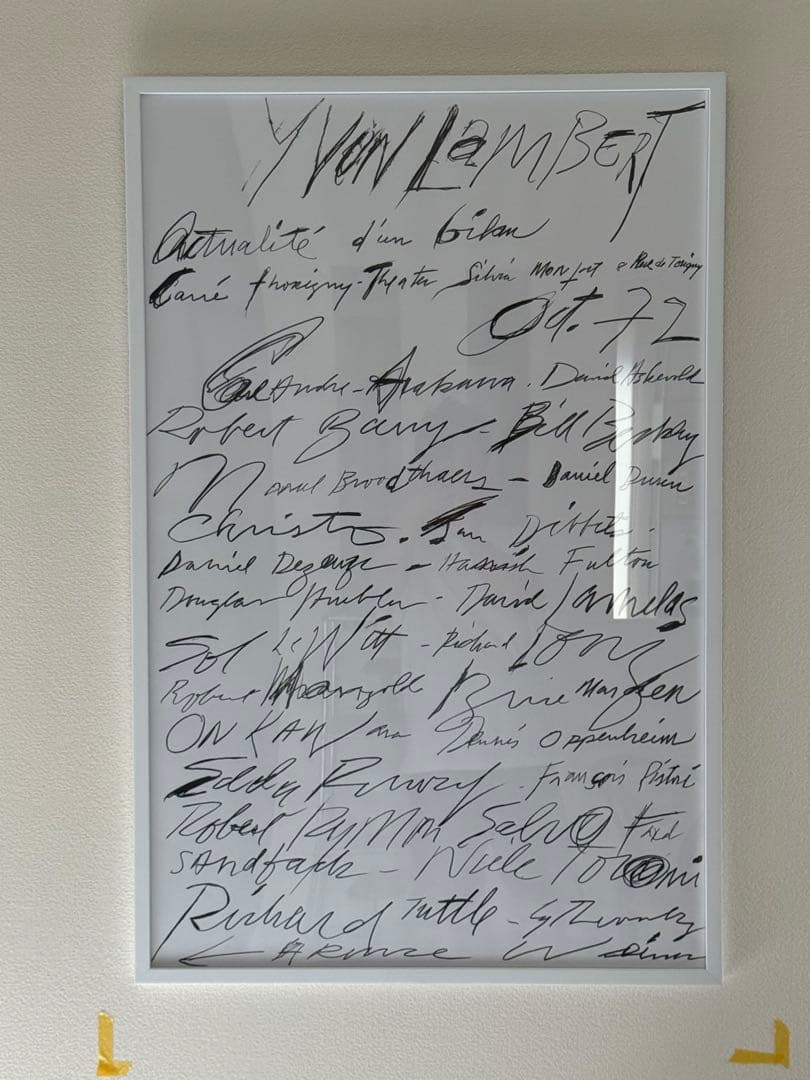 YVON LAMBERT
Actualité d'un bilan
Carré Thorigny - Theater Silvia Monfort Rue de Torigny
Oct. 72
Carl Andre - Arakawa. David Askevold
Robert Barry - Bill Beckley
Marcel Broodthaers - Daniel Buren
Christo. Jan Dibbets.
Daniel Dezeuze - Hamish Fulton
Douglas Huebler - David Lamelas
Sol LeWitt - Richard Long
Robert Mangold Brice Marden
ON KAWara Dennis Oppenheim
Edda Renouf. François Ristori
Robert Ryman Salvo Fred
SANdback - Niele Toroni
Richard Tuttle - Cy Twombly
LAWRence Weiner